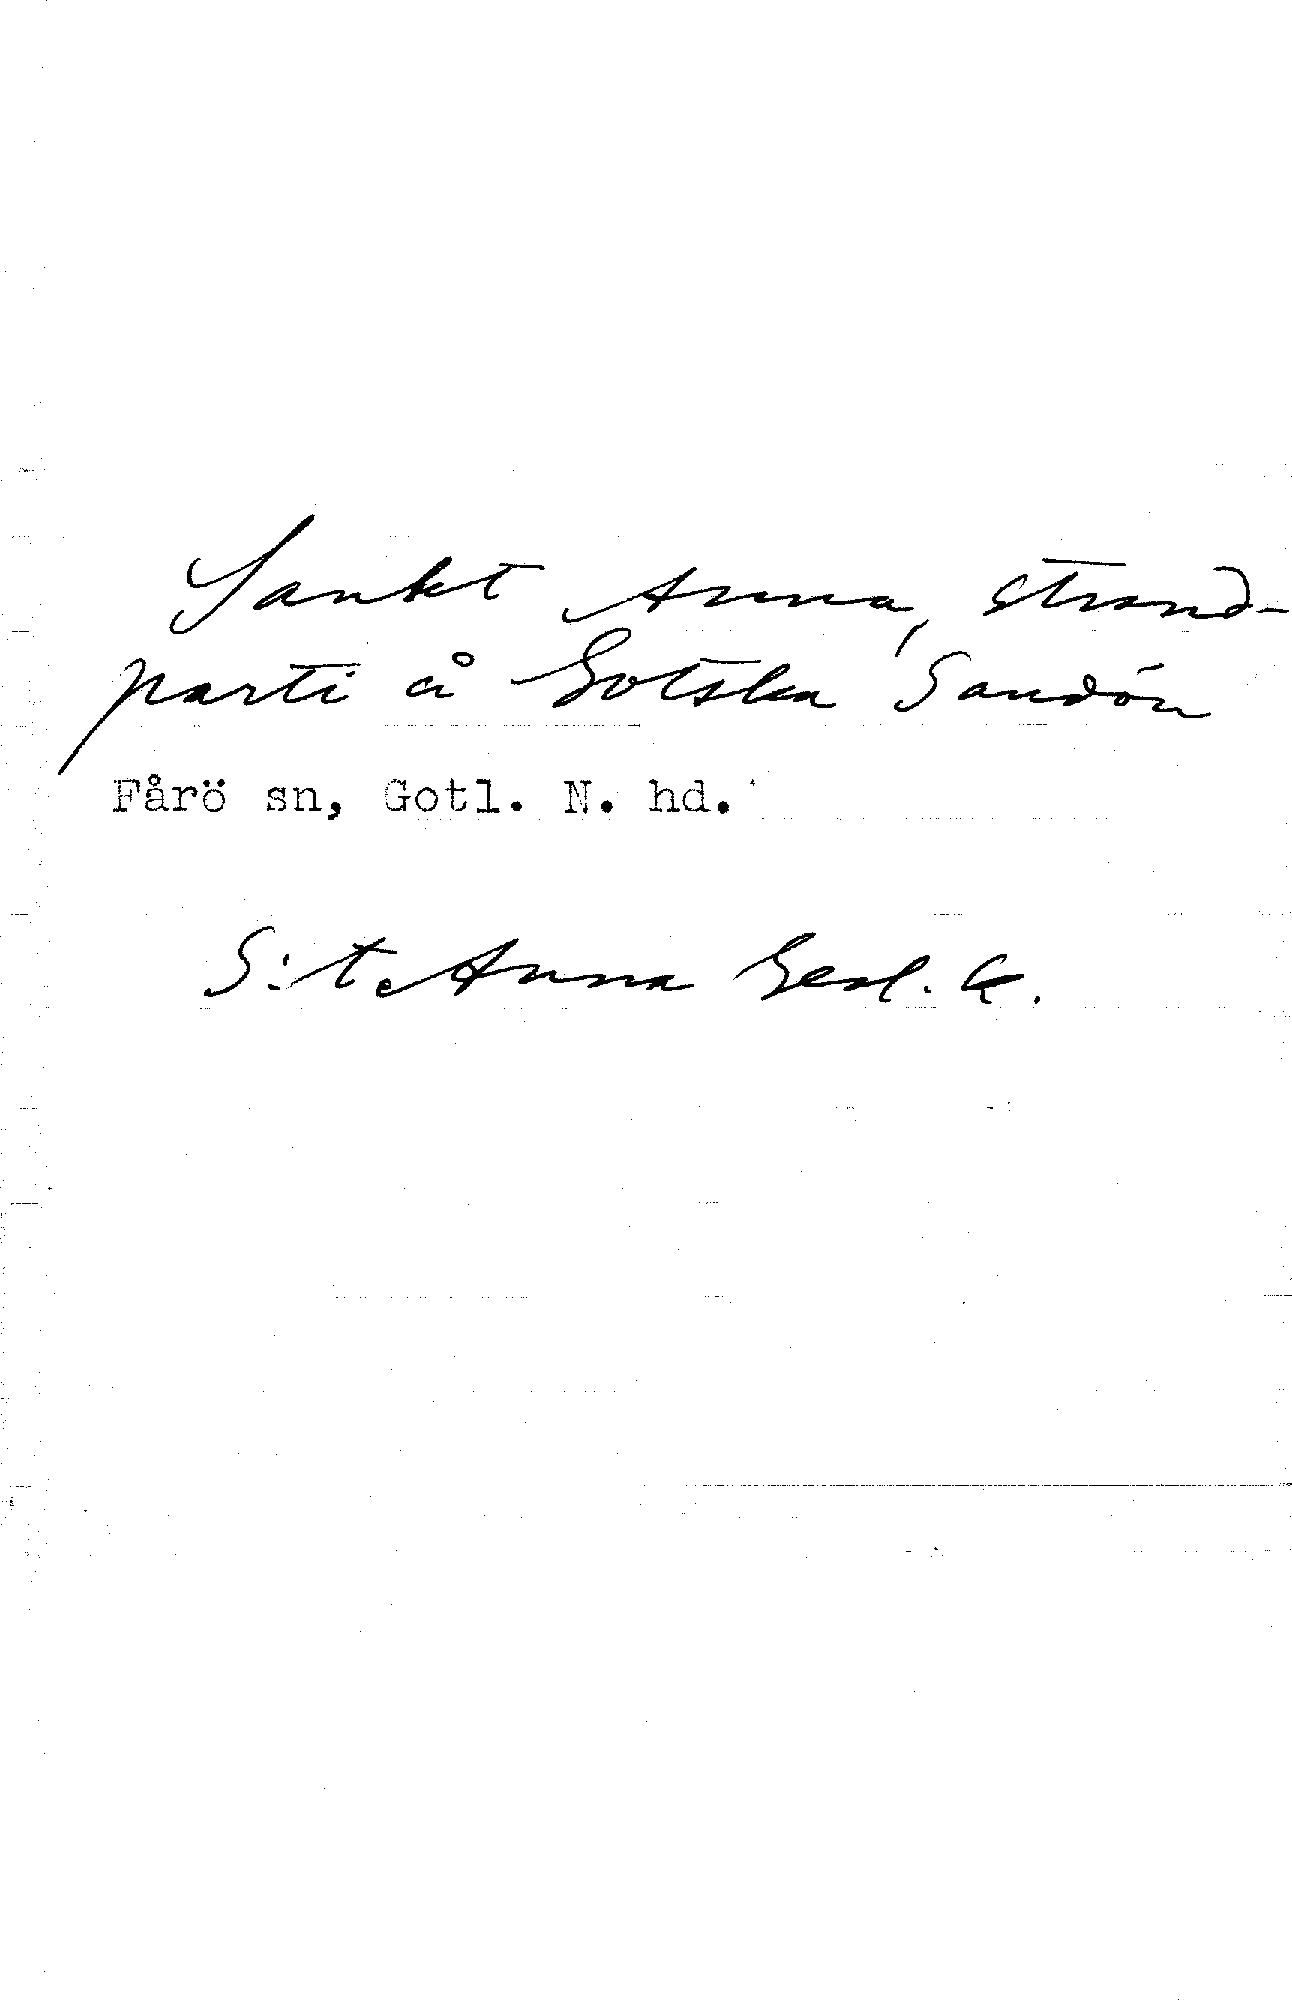 Sankt Anna, strand-
parti å Gotska Sandön
Fårö sn, Gotl. N. hd.
S:t Anna Geol. k.